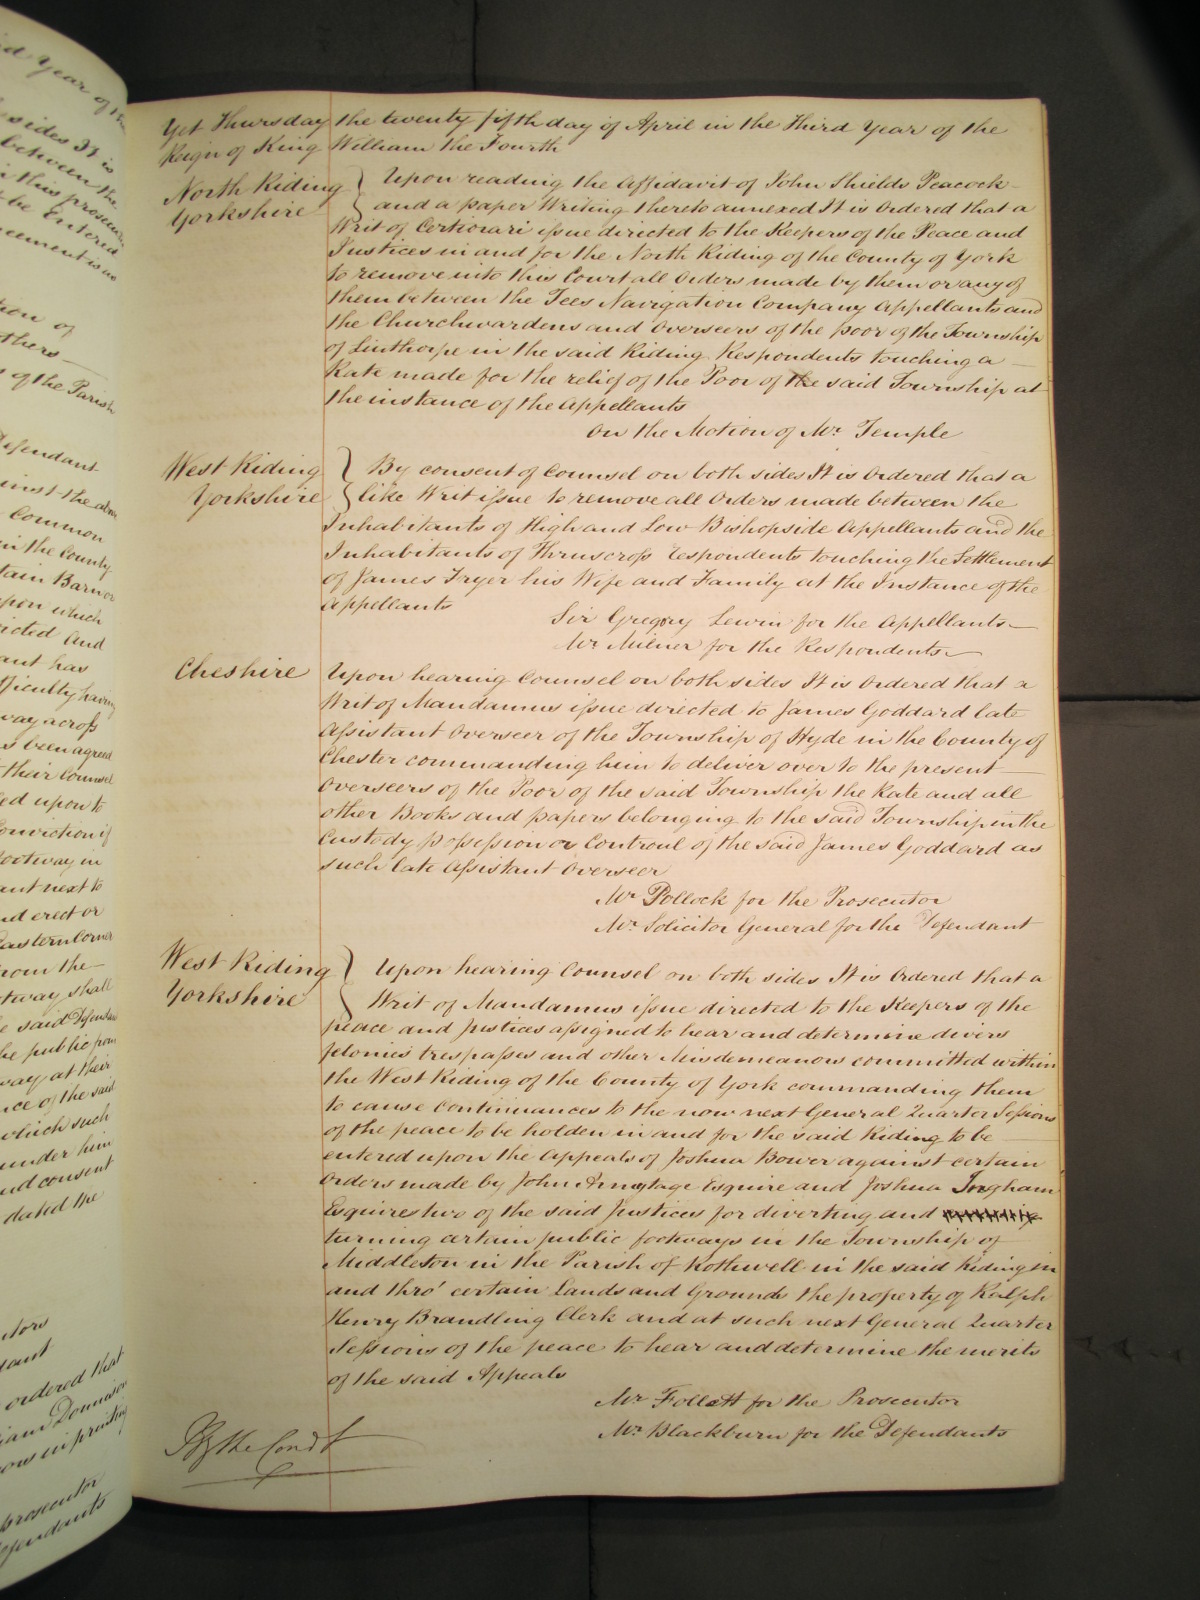 Yet Thursday the twenty fifth day of April in the Third Year of the
Reign of King William the Fourth
North Riding
Yorkshire
Upon reading the Affidavit of John Shields Peacock
and a paper Writing thereto annexed It is Ordered that a
Writ of Certiorari issue directed to the Keepers of the Peace and
Justices in and for the North Riding of the County of York
to remove into this Court all Orders made by them or any of
them between the Tees Navigation Company Appellants and
the Churchwardens and Overseers of the poor of the Township
of Linthorpe in the said Riding Respondents touching a
Rate made for the relief of the Poor of the said Township at
the instance of the Appellants
On the Motion of Mr Temple
West Riding
Yorkshire
By consent of Counsel on both sides It is Ordered that a
like Writ issue to remove all Orders made between the
Inhabitants of High and Low Bishopside Appellants and the
Inhabitants of Thruscross Respondents touching the Settlement
of James Fryer his Wife and Family at the Instance of the
Appellants
Sir Gregory Lewin for the Appellants
Mr Milner for the Respondents
Cheshire
Upon hearing Counsel on both sides It is Ordered that a
Writ of Mandamus issue directed to James Goddard late
Assistant Overseer of the Township of Hyde in the County of
Chester commanding him to deliver over to the present
Overseers of the Poor of the said Township the Rate and all
other Books and papers belonging to the said Township in the
Custody possession or Controul of the said James Goddard as
such late Assistant Overseer
Mr Pollock for the Prosecutor
Mr Solicitor General for the Defendant
West Riding
Yorkshire
Upon hearing Counsel on both sides It is Ordered that a
Writ of Mandamus issue directed to the Keepers of the
peace and Justices assigned to hear and determine divers
felonies trespasses and other Misdemeanors committed within
the West Riding of the County of York commanding them
to cause Continuances to the now next General Quarter Sessions
of the peace to be holden in and for the said Riding to be
entered upon the Appeals of Joshua Bower against certain
Orders made by John Armytage Esquire and Joshua Ingham
Esquires two of the said Justices for diverting and
turning certain public footways in the Township of
Middleton in the Parish of Rothwell in the said Riding in
and thro' certain Lands and Grounds the property of Ralph
Henry Brandling Clerk and at such next General Quarter
Sessions of the peace to hear and determine the merits
of the said Appeals
Mr Follett for the Prosecutor
Mr Blackburn for the Defendants
By the Court